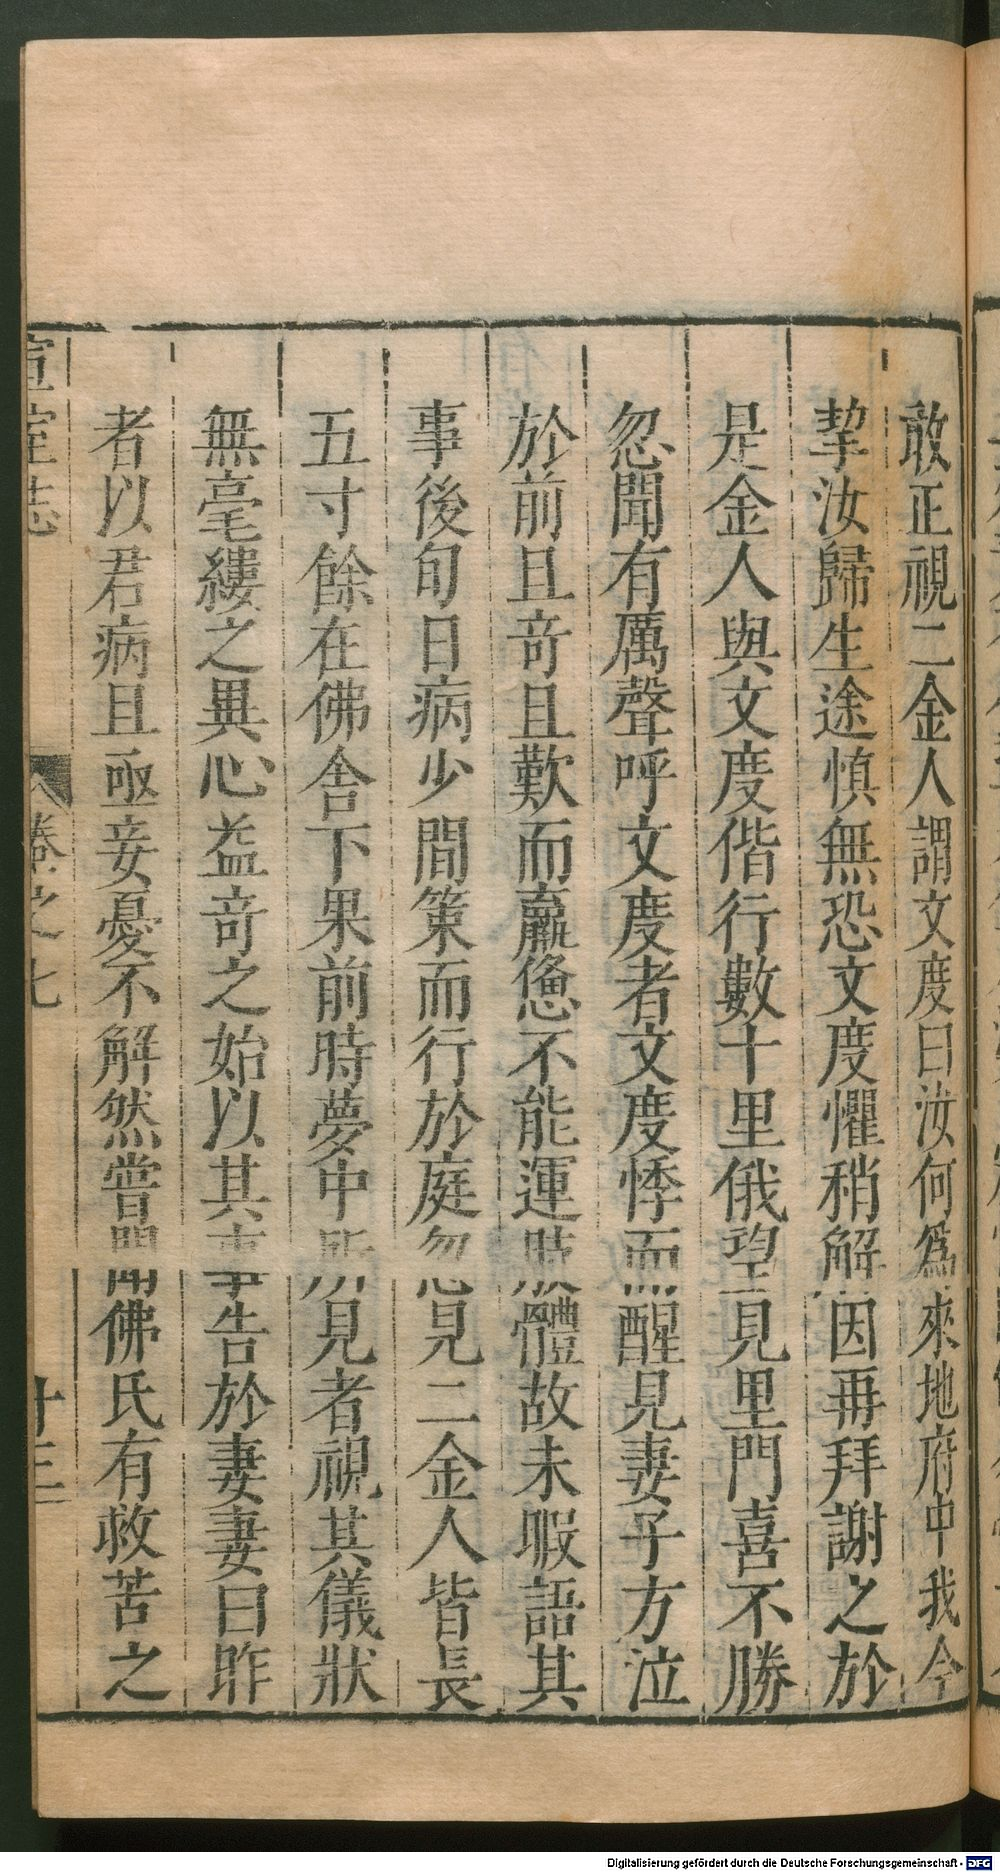 敢正視二金人謂文度曰汝何爲來地府中我今
挈汝歸生途慎無恐文度懼稍解因再拜謝之於
是金人與文度偕行數十里俄望見里門喜不勝
忽聞有厲聲呼文度者文度悸而醒見妻子方泣
於前且竒且歎而羸憊不能運肢體故未暇語其
事後旬日病少間策而行於庭忽見二金人皆長
五寸餘在佛舍下果前時夢中所見者視其儀狀
無毫縷之異心益竒之始以其事告於妻妻曰昨
者以君病且亟妾憂不解然嘗聞佛氏有救苦之
宣室志
卷之七
十三
Digitalisierung gefördert durch die Deutsche Forschungsgemeinschaft - DFG